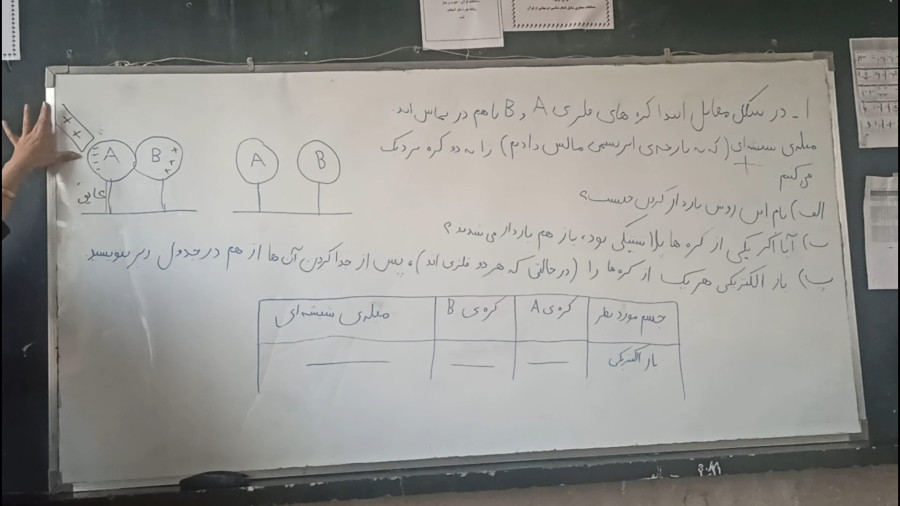 ۱- در شکل مقابل ابتدا کره های فلزی A و B باهم در تماس اند
میله‌ی شیشه‌ای (که به پارچه‌ی ابریشمی مالش دادیم) را به دو کره نزدیک
+
می‌کنیم
الف) نام این روش باردار کردن چیست؟
ب) آیا اگر یکی از کره ها پلاستیکی بود، باز هم باردار می‌شدند؟
پ) بار الکتریکی هر یک از کره‌ها را (در حالتی که هر دو فلزی اند)، پس از جدا کردن آن‌ها از هم در جدول زیر بنویسید
جسم مورد نظر کره‌ی A کره‌ی B میله‌ی شیشه‌ای
بار الکتریکی
+ +
A B
عایق
A B